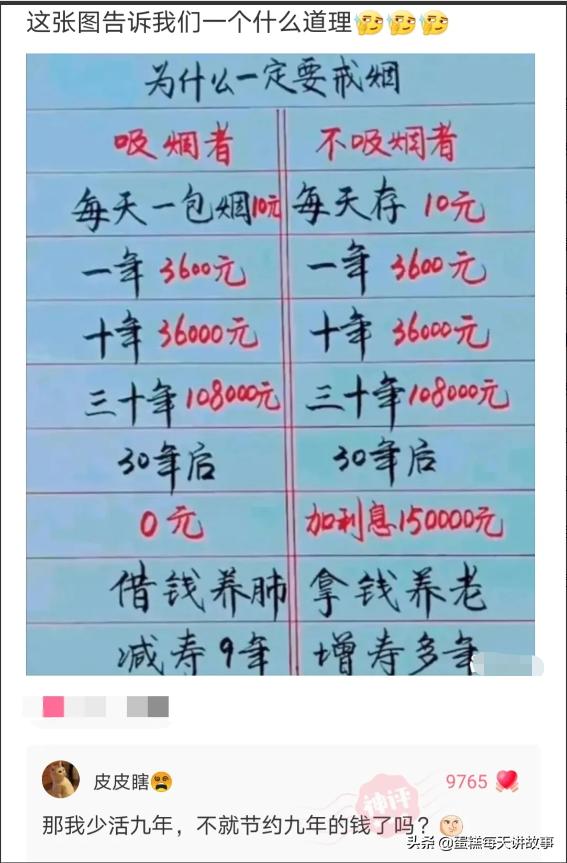 这张图告诉我们一个什么道理
为什么一定要戒烟
吸烟者 不吸烟者
每天一包烟10元 每天存 10元
一年 3600元 一年 3600元
十年 36000元 十年 36000元
三十年 108000元 三十年 108000元
30年后 30年后
0元 加利息150000元
借钱养肺 拿钱养老
减寿9年 增寿多年
皮皮瞎
9765
神评
那我少活九年，不就节约九年的钱了吗？
头条 @蛋糕每天讲故事